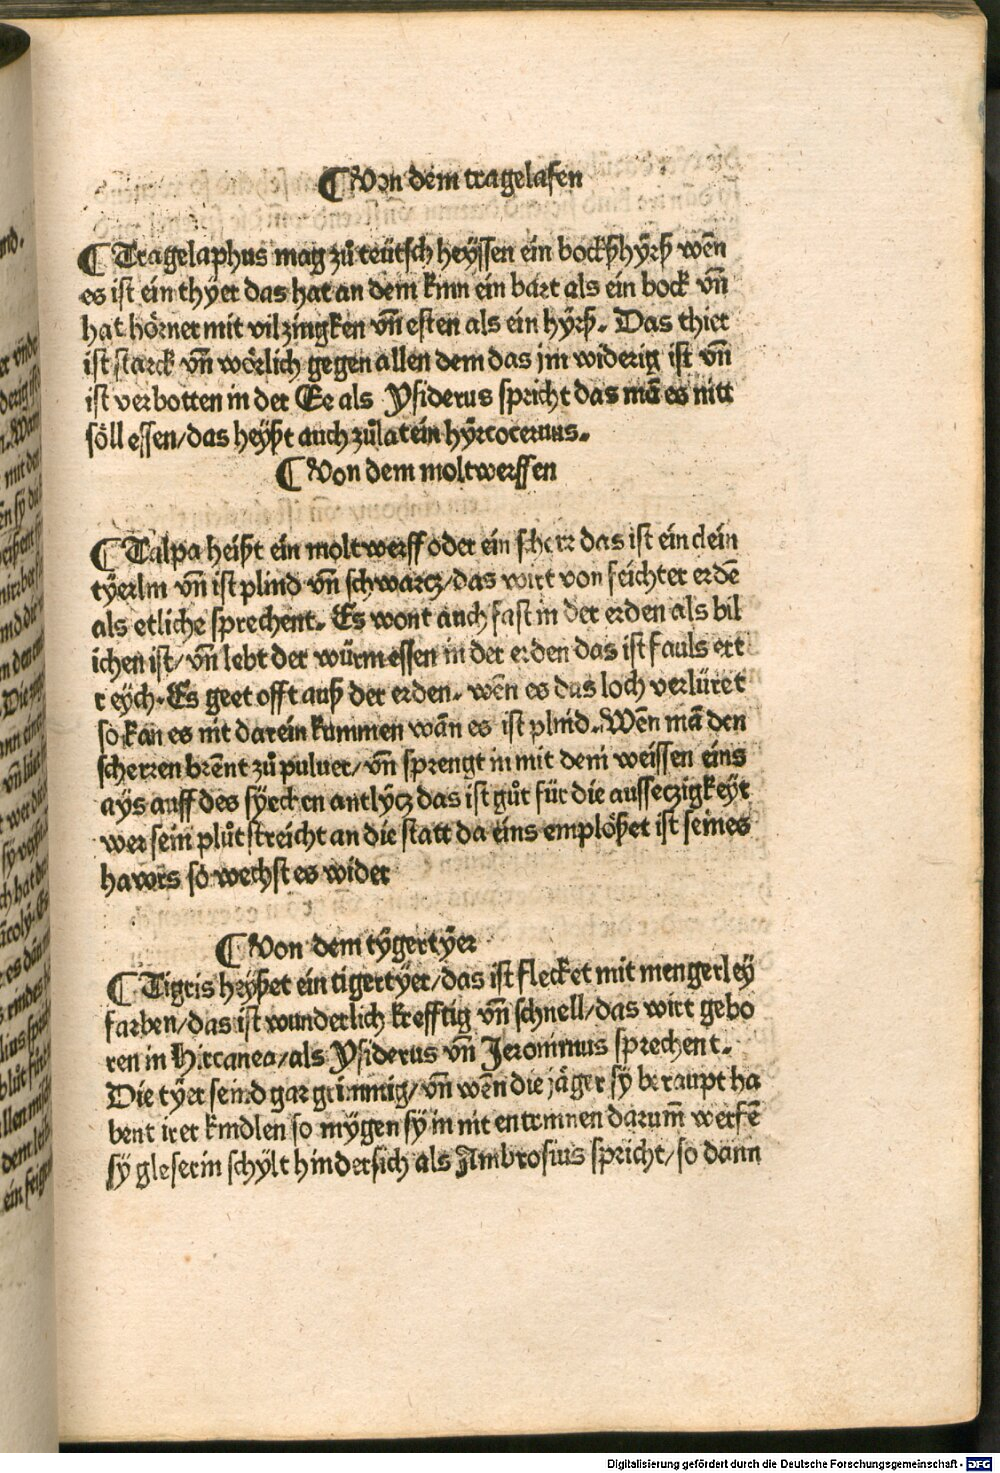 ¶ Von dem tragelafen
¶ Tragelaphus mag zů teütsch heyssen ein bockßhyrß wen̄
es ist ein thyer das hat an dem kinn ein bart als ein bock vn̄
hat hörner mit vil zingken vn̄ esten als ein hyrß. Das thier
ist starck vn̄ wörlich gegen allen dem das jm widerig ist vn̄
ist verbotten in der Ee als Ysiderus spricht das mā es nitt
söll essen/das heyßt auch zů latein hyrcoceruus.
¶ Von dem moltwerffen
¶ Talpa heißt ein moltwerff oder ein scherr das ist ein clein
tyerlin vn̄ ist plind vn̄ schwarcz/das wirt von feichter erdē
als etliche sprechent. Es wont auch fast in der erden als bil
ichen ist/vn̄ lebt der würm essen in der erden das ist fauls ert
reych. Es geet offt auß der erden. wēn es das loch verlüret
so kan es nit darein kummen wān es ist plind. Wēn mā den
scherren brēnt zů puluer/vn̄ sprengt in mit dem weissen eins
ays auff des syechen antlycz das ist gůt für die ausseczigkeyt
wer sein plůt streicht an die statt da eins emplößet ist seines
hawrs so wechst es wider
¶ Von dem tygertyer
¶ Tigris heyßet ein tigertyer/das ist flecket mit mengerley
farben/das ist wunderlich krefftig vn̄ schnell/das wirt gebo
ren in Hircanea/als Ysiderus vn̄ Jeronimus sprechent.
Die tyer seind gar grimmig/vn̄ wēn die jäger sy beraupt ha
bent irer kindlen so mygen sy in nit entrinnen darum̄ werfē
sy gleserin schylt hindersich als Ambrosius spricht/so dann
Digitalisierung gefördert durch die Deutsche Forschungsgemeinschaft - DFG